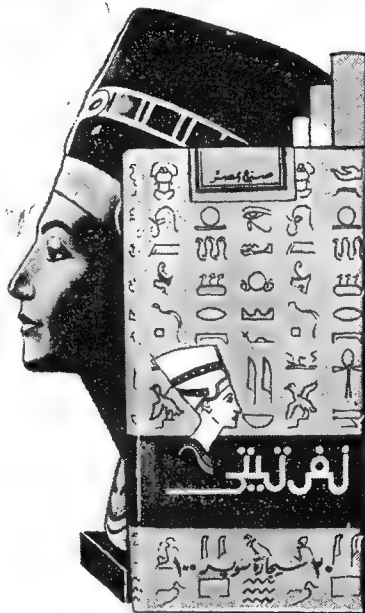 صنع في مصر
نفرتيتي
٢٠ سيجارة سوبر ١٠٠